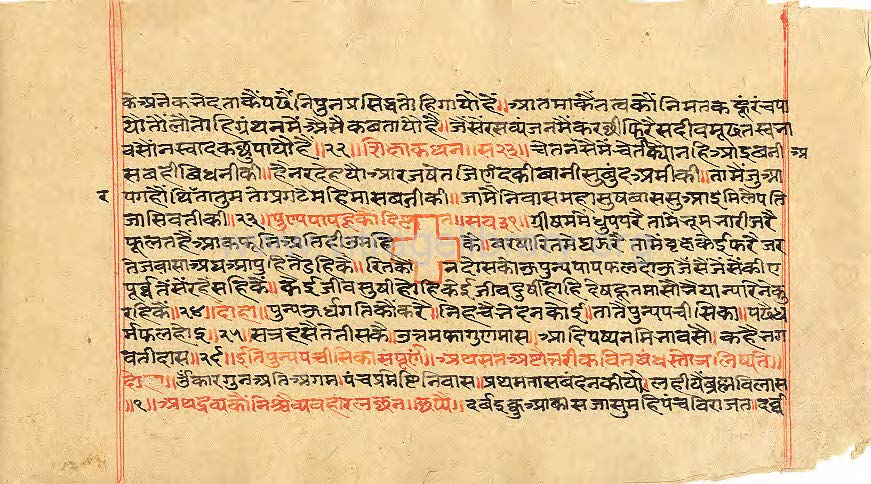 के अनेक नेद ताकैं पढैं निपुन प्रसिद्ध तोहि गायौ है॥ आतमा कैं तत्व कौं निमत क हूं रंच पा
यौ तौ लौं तोहि ग्रंथन में असैं कै बतायौ है॥ जैसैं रस व्यंजन में करछी फिरै सदीव मूढ तस्वना
वसौं न स्वाद कछु पायौ है॥२२॥ शिक्षा कथन॥ स २३॥ चेतन अैसैं में चेतत क्यौं नहि आइ बनी
सबही विधि नीकी॥ है नर देह यौ आरज षेत जिणंद की बानी सु बुंद अमी की॥ तामैं जु आ
प गहौ थिरता तुम तौ प्रगटै महिमा सब जी की॥ जामै निवास महा सुष वास सु आइ मिलै पति
जा सिवती की॥२३॥ ग्रीषम में धुप परै तामै भूम नारी जरै
फूलत है आक पुनि अति ही उमहि कै॥ वरषा रितु मेघ झरै तामै वृक्ष केई फरै जर
त जवासा अघ आपुहि तै डहि कै॥ रितु कौ न दोस कोऊ पुन्य पाप फल दोऊ जैसैं जैसैं कीए
पूर्व्व तैसैं रहै सहि कै॥ केई जीव सुषी होहि केई जीव दुषी होहि देषहु तमासौ भैया न्यारे नैकु
रहि कै॥२४॥ दोहा॥ पुन्य ऊर्ध गति कौं करै॥ निहचै भेद न कोई॥ तातै पुन्य पचीसिका॥ पढै ध
र्म फल होइ॥२५॥ सत्रह सै तेतीस कै॥ उत्तम फागुण मास॥ आदि पष्य नमि नाव सौं॥ कहै भग
वतीदास॥२६॥ इति पुन्य पचीसिका संपूर्ण॥ अथ सत अष्टोत्तरी कवित्त बंध स्ताउ लिष्यते॥
दोहा॥ ॐकार गुन अति अगम पंच प्रमिष्टि निवास॥ प्रथम तास बंदन कीयै॥ लहीयै ब्रह्म विलास
॥१॥ अथ द्रव्य कौं निश्चै व्यवहार लछन॥ छप्पै॥ दर्व इकु आकास जासु महि पंच विराजत॥ दर्व्व